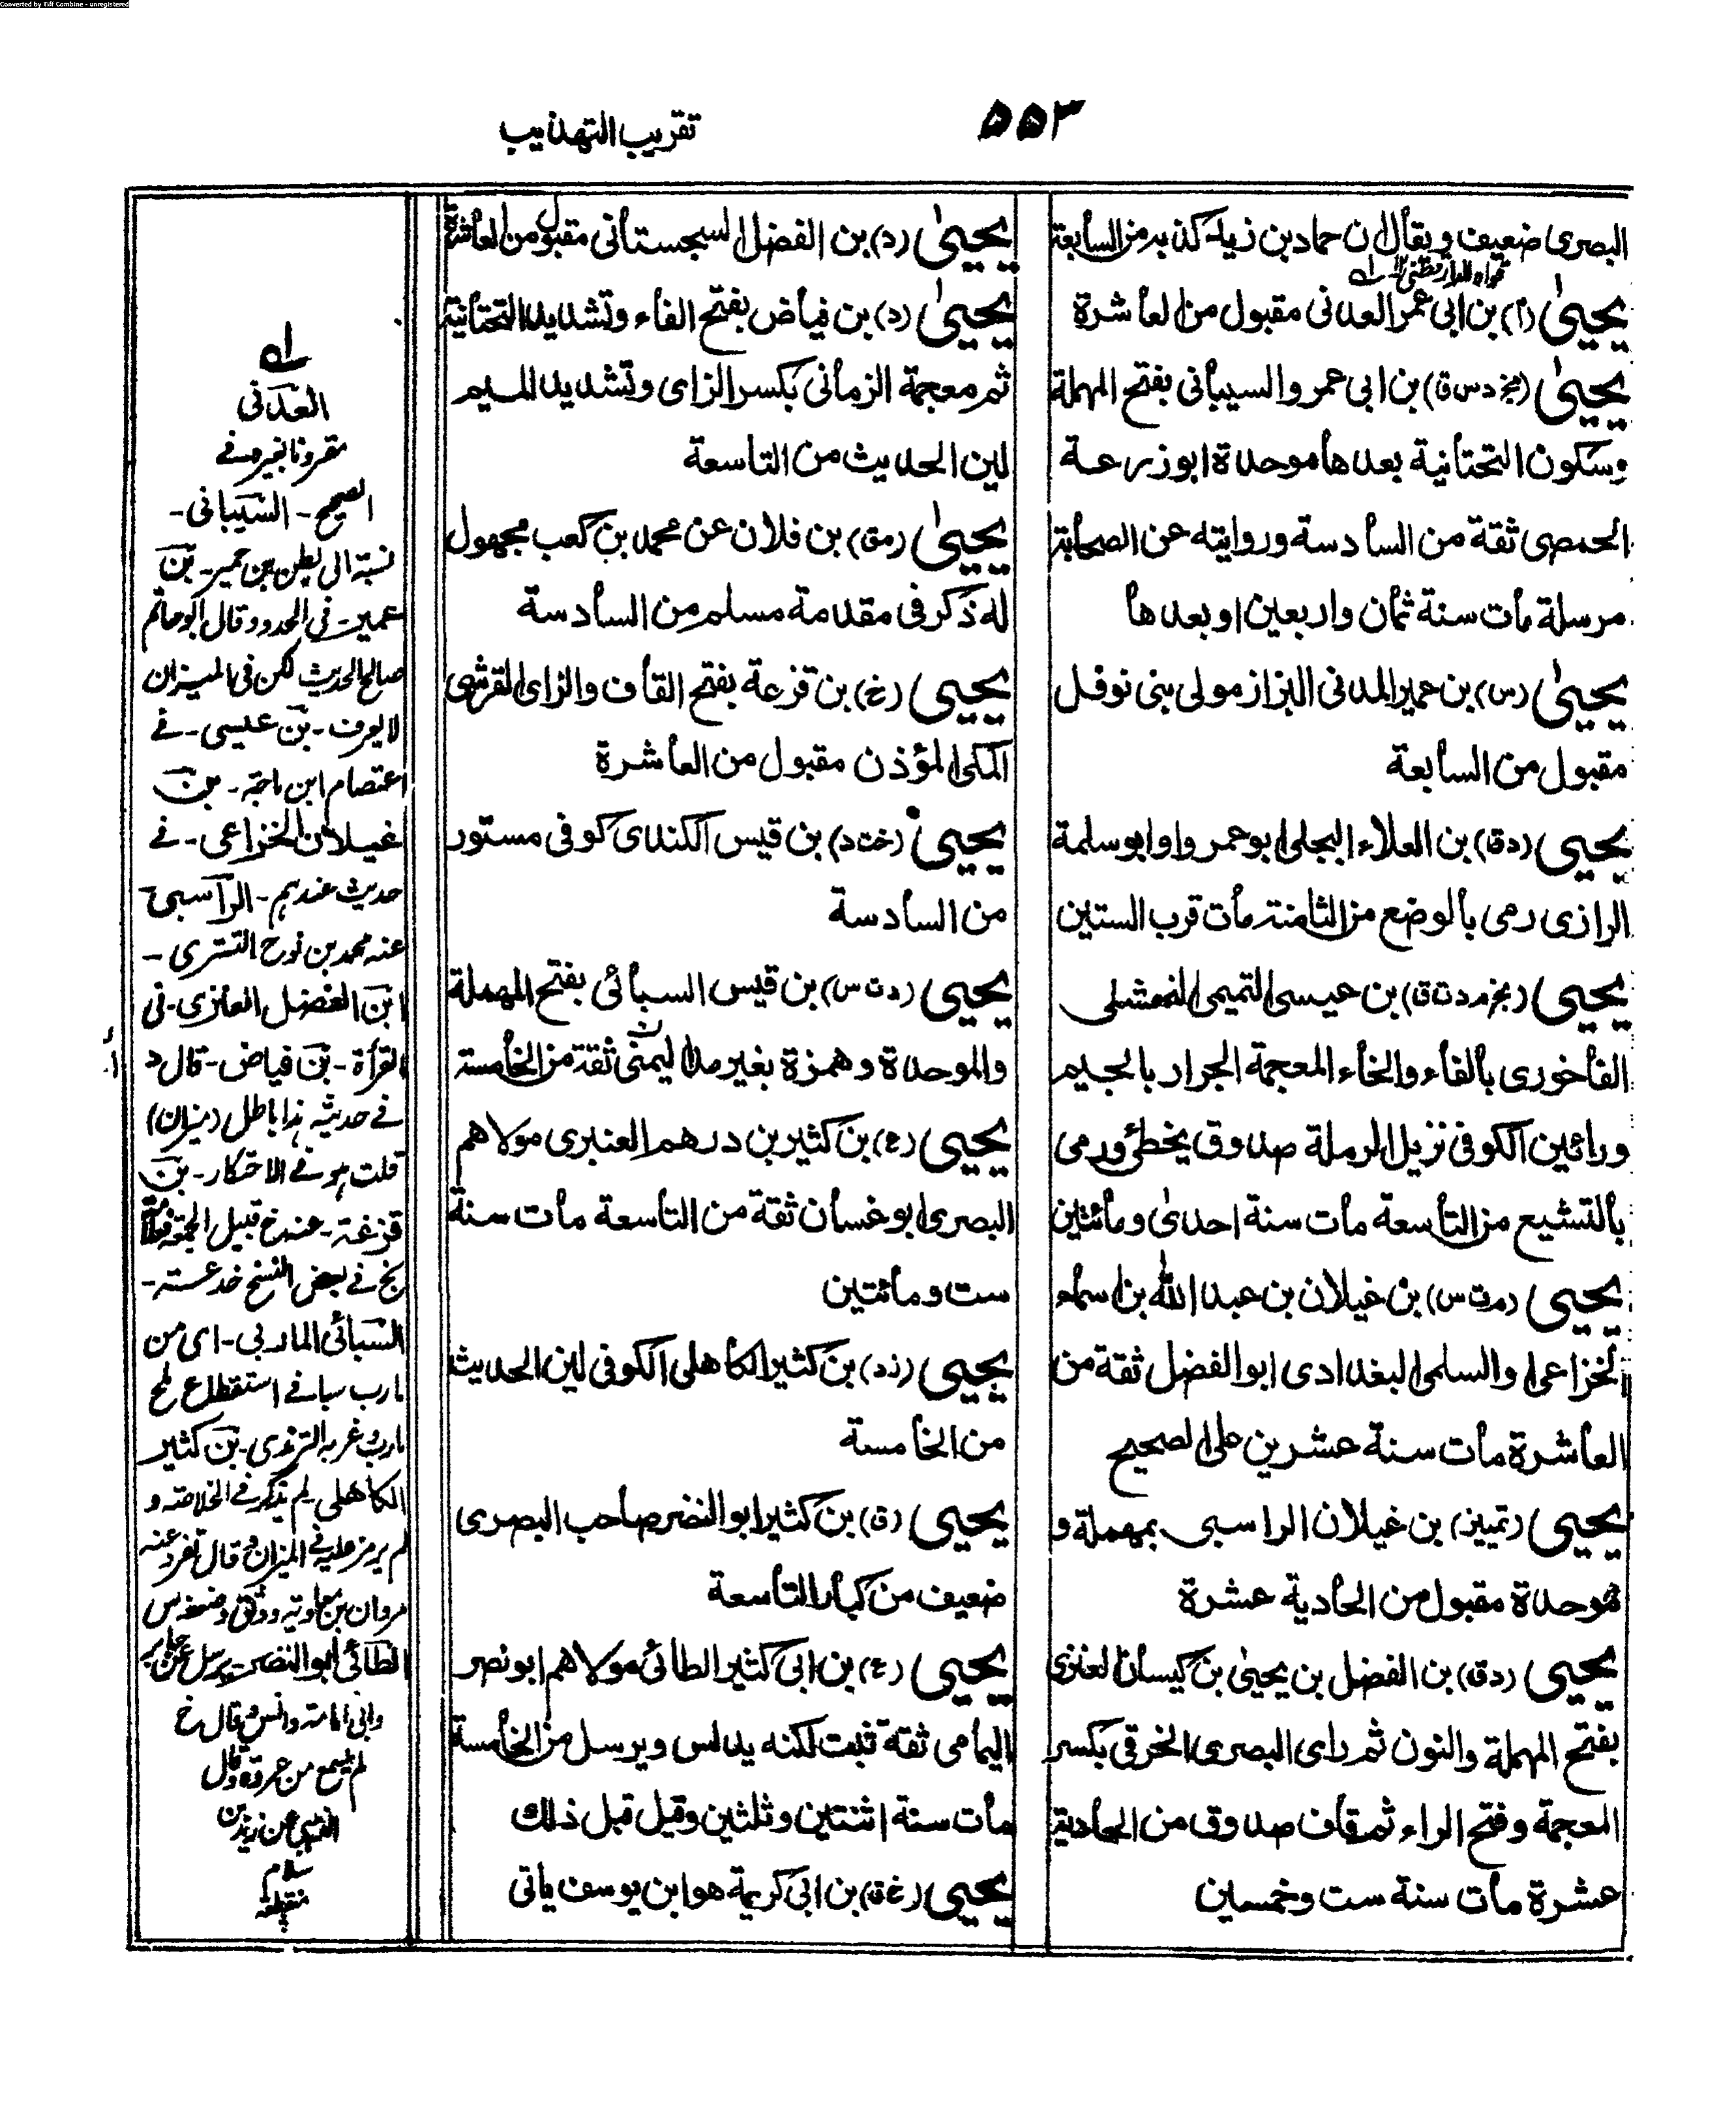 Converted by Tiff Combine - unregistered
۵۵۳
تقريب التهذيب
البصرى ضعيف ويقال ان حماد بن زيد كذبه من السابعة
يحيىٰ (م) بن ابى عمر العدنى مقبول من العاشرة
يحيىٰ (بخ د س ق) بن ابى عمرو السيبانى بفتح المهملة
وسكون التحتانية بعدها موحدة ابو زرعة
الحمصى ثقة من السادسة وروايته عن الصحابة
مرسلة مات سنة ثمان واربعين او بعدها
يحيىٰ (س) بن عمير المدنى البزاز مولى بنى نوفل
مقبول من السابعة
يحيى (د ق) بن العلاء البجلى ابو عمرو او ابو سلمة
الرازى رمى بالوضع من الثامنة مات قرب الستين
يحيى (بخ م د ت ق) بن عيسى التميمى النهشلى
الفاخورى بالفاء والخاء المعجمة الجرار بالجيم
ورائين الكوفى نزيل الرملة صدوق يخطئ ورمى
بالتشيع من التاسعة مات سنة احدى ومائتين
يحيى (م ت س) بن غيلان بن عبد الله بن اسماء
الخزاعى او السلمى البغدادى ابو الفضل ثقة من
العاشرة مات سنة عشرين على الصحيح
يحيى (تمييز) بن غيلان الراسبى بمهملة و
موحدة مقبول من الحادية عشرة
يحيى (د ق) بن الفضل بن يحيىٰ بن كيسان العنزى
بفتح المهملة والنون ثم زاى البصرى الخرقى بكسر
المعجمة وفتح الراء ثم قاف صدوق من الحادية
عشرة مات سنة ست وخمسين
يحيىٰ (د) بن الفضل السجستانى مقبول من العاشرة
يحيىٰ (د) بن فياض بفتح الفاء وتشديد التحتانية
ثم معجمة الزمانى بكسر الزاى وتشديد الميم
لين الحديث من التاسعة
يحيىٰ (مق) بن فلان عن محمد بن كعب مجهول
له ذكر فى مقدمة مسلم من السادسة
يحيى (خ) بن قزعة بفتح القاف والزاى القرشى
المكى المؤذن مقبول من العاشرة
يحيى (خت د) بن قيس الكندى كوفى مستور
من السادسة
يحيى (د ت س) بن قيس السبائى بفتح المهملة
والموحدة وهمزة بغير مد اليمنى ثقة من الخامسة
يحيى (ع) بن كثير بن درهم العنبرى مولاهم
البصرى ابو غسان ثقة من التاسعة مات سنة
ست ومائتين
يحيى (ز د) بن كثير الكاهلى الكوفى لين الحديث
من الخامسة
يحيى (ق) بن كثير ابو النضر صاحب البصرى
ضعيف من كبار التاسعة
يحيى (ع) بن ابى كثير الطائى مولاهم ابو نصر
اليمامى ثقة ثبت لكنه يدلس ويرسل من الخامسة
مات سنة اثنتين وثلثين وقيل قبل ذلك
يحيى (خ ق) بن ابى كريمة هو ابن يوسف ياتى
العدنى
مقرونا بغيره فے
الصحيح - السيبانى -
نسبة الى بطن من حمير - بن
عمير - فى الحدود وقال ابو حاتم
صالح الحديث لكن فى الميزان
لا يعرف - بن عيسى - فے
اعتصام ابن ماجة - بن
غيلان الخزاعى - فے
حديث عندهم - الراسبى
عنه محمد بن نوح التسترى -
ابن الفضل العنزى - فى
القرأة - بن فياض - قال د
فے حديثه هذا باطل (ميزان)
قلت هو فے الاحتكار - بن
قزعة - عند خ قبيل الجمعة
فے بعض النسخ
السبائى الماربى - اى من
مارب سبا فے استقطاع ملح
مارب وغربه الترمذى - بن كثير
الكاهلى - لم يذكر فے الخلاصة و
لم يرمز عليه فے الميزان وقال تفرد عنه
مروان بن معاوية ووثق وضعفه س
الطائى ابو النضر يرسل عن جابر
وابى امامة وانس وقال خ
لم يسمع من عروة وقال
عن زيد بن
سلام
منقطعة